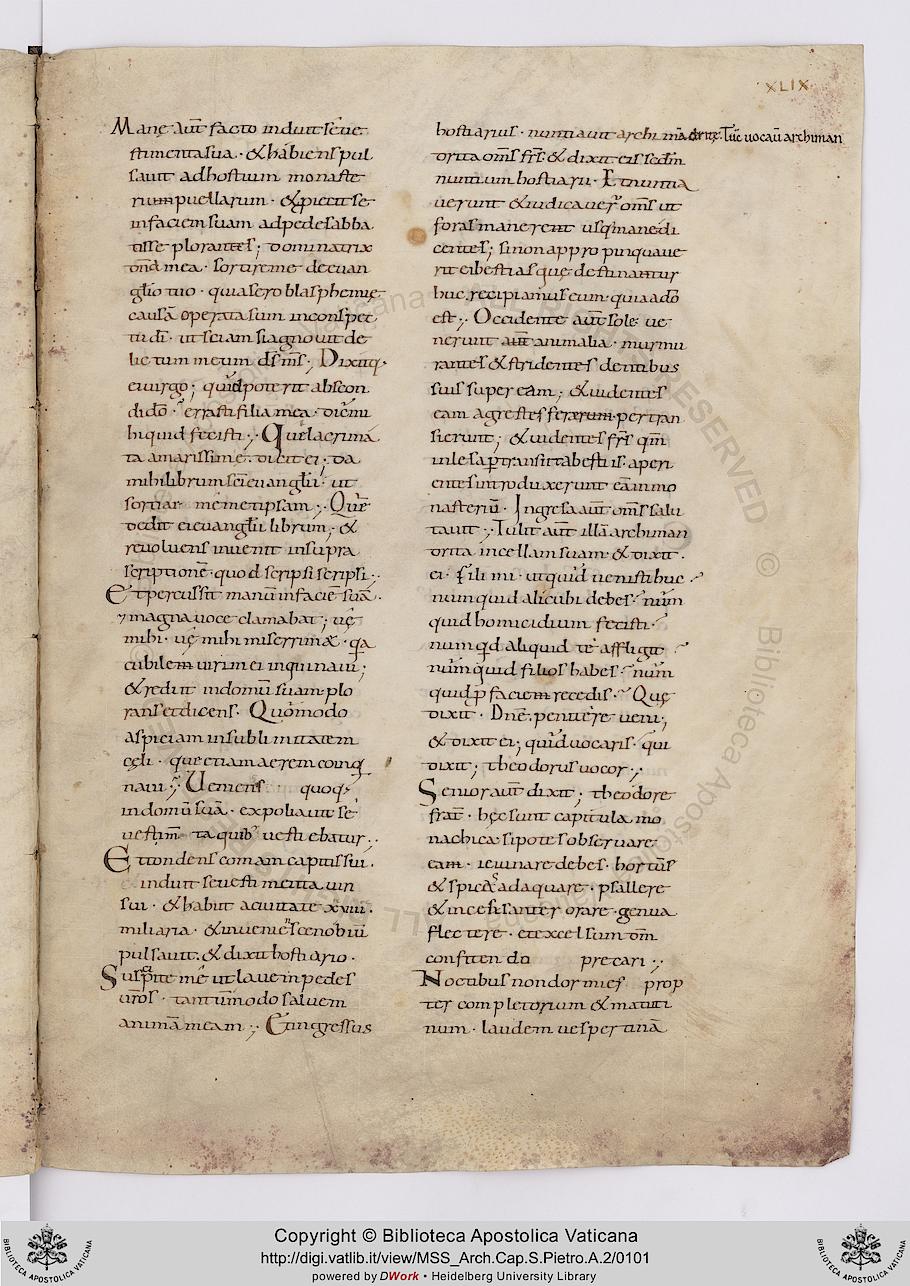 XLIX
Mane aut facto induit se ue
stimenta sua · & habiens pul
sauit ad hostium monaste
rium puellarum · & piecit se
in faciem suam ad pedes abba
tisse plorantes; dominatrix
mea · sortire me de euan
glio tuo · quia sero blasphemie
causa operata sum in conspec
tu di · ut sciam si agnouit de
lictum meum ds ms; Dixitq·
ei uirgo; quid poterit abscon
di do · errasti filia mea · dic mi
hi quid fecisti; Que lacrima
ta amarissime · dicit ei; da
mihi librum sci euanglii · ut
sortiar memetipsam; Que
dedit ei euanglii librum; &
reuoluens inuenit in supra
scriptione · quod scripsi scripsi;
Et percussit manu in facie sua ·
7 magna uoce clamabat; ue
mihi · ue mihi miserrimæ · qa
cubilem uiri mei inquinaui;
& rediit in domu suam plo
rans et dicens · Quomodo
aspiciam in sublimitatem
celi · que etiam aerem coinq
naui; Ueniens quoq
in domu sua · expoliauit se
uestim ta quib uestiebatur;
Et tondens comam capitis sui ·
induit se uestimenta uiri
sui · & habiit a ciuitate xviii ·
miliaria · & inueniens cenobiu
pulsauit · & dixit hostiario ·
Suscipite me ut lauem pedes
uros · tantumodo saluem
anima meam; Et ingressus
hostiarius · nuntiauit archimadrite · Tuc uocau archiman
drita oms frs & dixit eis scdm
nuntium hostiarii · Et nuntia
uerunt & iudicauer oms ut
foras manerent usq mane di
centes; si non appropinquaue
rit ei bestias que destinantur
huc recipiamus eum · quia a do
est; Occidente aut sole ue
nerunt aut animalia · murmu
rantes & stridentes dentibus
suis super eam; & uidentes
eam agrestes ferarum pertran
sierunt; & uidentes frs qm
inlesa ptransit a bestiis · aperi
entes introduxerunt eam in mo
nasteriu · Ingresa aut oms salu
tauit; Tulit aut illa archiman
drita in cellam suam & dixit ·
ei · Fili mi · ut quid uenisti huc
numquid alicubi debes · num
quid homicidium fecisti ·
numqd aliquid te affligit
numquid filios habes · num
quid p faciem recedis · Que
dixit · Dne · penitere ueni;
& dixit ei; quid uocaris · qui
dixit; theodorus uocor;
Senior aut dixit; theodore
frat · hec sunt capitula mo
nachica si potes obseruare
eam · ieiunare debes · hortus
& spica adaquare · psallere
& incesanter orare · genua
flectere · et excelsum om
confiten do precari;
Noctibus non dormies prop
ter completorium & matuti
num · laudem uespertina
Copyright © Biblioteca Apostolica Vaticana
http://digi.vatlib.it/view/MSS_Arch.Cap.S.Pietro.A.2/0101
powered by DWork • Heidelberg University Library